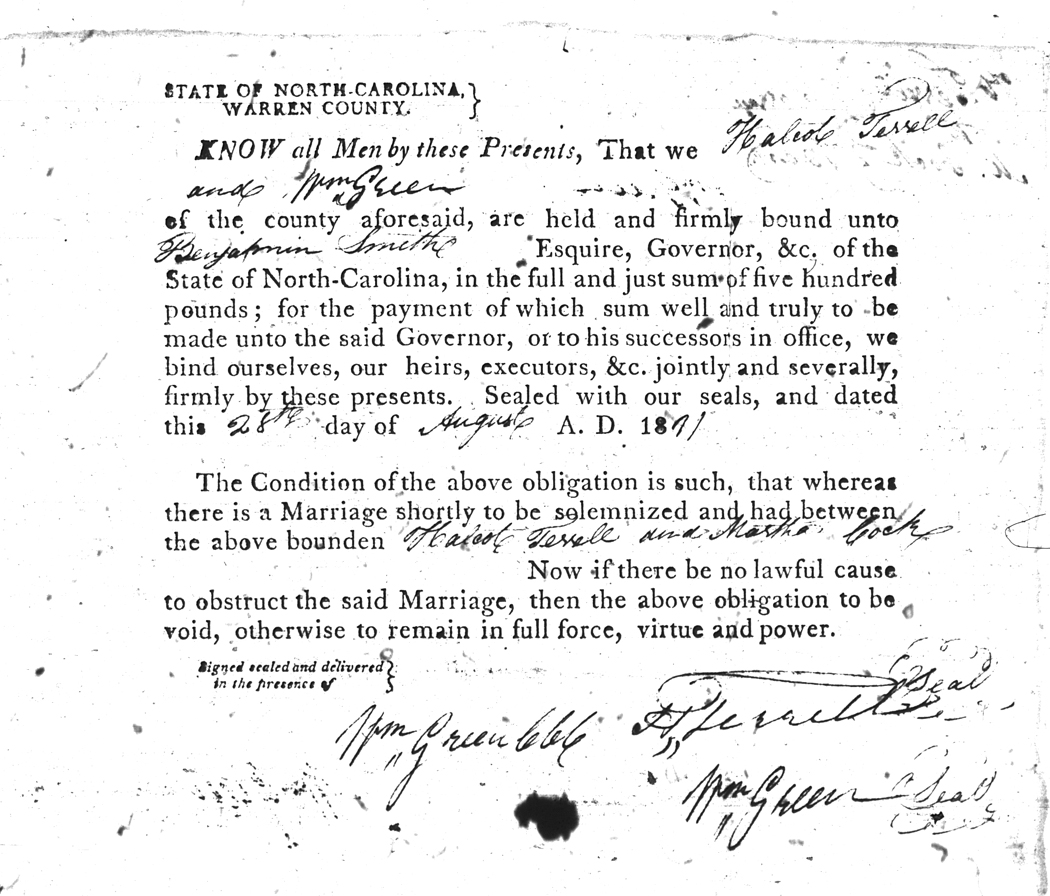 STATE OF NORTH-CAROLINA,
WARREN COUNTY.
KNOW all Men by these Presents, That we Halcot Terrell
and Wm Green
of the county aforesaid, are held and firmly bound unto
Benjamin Smith Esquire, Governor, &c. of the
State of North-Carolina, in the full and just sum of five hundred
pounds; for the payment of which sum well and truly to be
made unto the said Governor, or to his successors in office, we
bind ourselves, our heirs, executors, &c. jointly and severally,
firmly by these presents. Sealed with our seals, and dated
this 28th day of August A. D. 1811
The Condition of the above obligation is such, that whereas
there is a Marriage shortly to be solemnized and had between
the above bounden Halcot Terrell and Martha Cock
Now if there be no lawful cause
to obstruct the said Marriage, then the above obligation to be
void, otherwise to remain in full force, virtue and power.
Signed sealed and delivered
in the presence of
H Terrell Seal
Wm Green CCC
Wm Green Seal